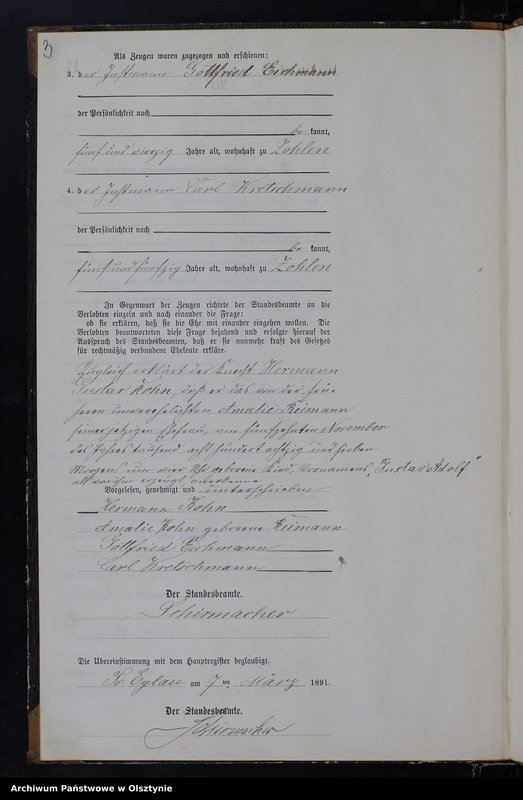 3
Als Zeugen waren zugezogen und erschienen:
3. der Instmann Gottfried Eichmann
der Persönlichkeit nach
be kannt,
fünf und vierzig Jahre alt, wohnhaft zu Zohlen
4. der Instmann Carl Kretschmann
der Persönlichkeit nach
be kannt,
fünf und fünfzig Jahre alt, wohnhaft zu Zohlen
In Gegenwart der Zeugen richtete der Standesbeamte an die
Verlobten einzeln und nach einander die Frage:
ob sie erklären, daß sie die Ehe mit einander eingehen wollen. Die
Verlobten beantworteten diese Frage bejahend und erfolgte hierauf der
Ausspruch des Standesbeamten, daß er sie nunmehr kraft des Gesetzes
für rechtmäßig verbundene Eheleute erkläre.
Zugleich erklärt der Knecht Hermann
Gustav Kohn, daß er das von der frü-
heren unverehelichten Amalie Reimann
seiner jetzigen Ehefrau, am fünfzehnten November
des Jahres tausend acht hundert achtzig und sieben
Morgens um vier Uhr geborene Kind, Vornamens "Gustav Adolf"
als von ihm erzeugt anerkenne
Vorgelesen, genehmigt und unterschrieben
Hermann Kohn
Amalie Kohn geborene Reimann
Gottfried Eichmann
Carl Kretschmann
Der Standesbeamte.
Schirmacher
Die Übereinstimmung mit dem Hauptregister beglaubigt.
Pr. Eylau am 7ten März 1891.
Der Standesbeamte.
Schirmacher
Archiwum Państwowe w Olsztynie